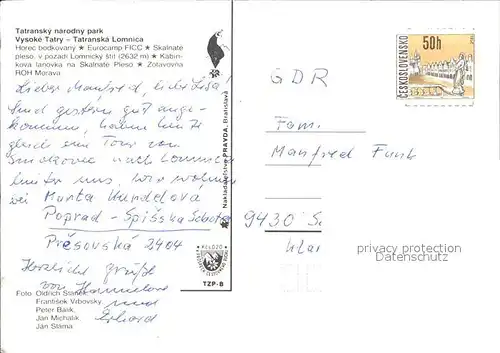 Tatranský národný park
Vysoké Tatry – Tatranská Lomnica
Horec bodkovaný ★ Eurocamp FICC ★ Skalnaté
pleso, v pozadí Lomnický štít (2632 m) ★ Kabín-
kova lanovka na Skalnaté Pleso ★ Zotavovňa
ROH Morava
Lieber Manfred, liebe Lisa!
Sind gestern gut ange-
kommen, haben heute
gleich eine Tour von
nach Lomnica
hinter uns. Wir wohnen
bei Marta Kundľová
Poprad - Spišská Sobota
Prešovská 2404
Herzliche Grüße
von Hannelore
und
Erhard
Foto: Oldřich Straník
František Vrbovský
Peter Balík,
Ján Michalík,
Ján Sláma
Nakladateľstvo PRAVDA, Bratislava
TZP-B
ČESKOSLOVENSKO
50h
GDR
Fam.
Manfred Funk
9430
privacy protection
Datenschutz